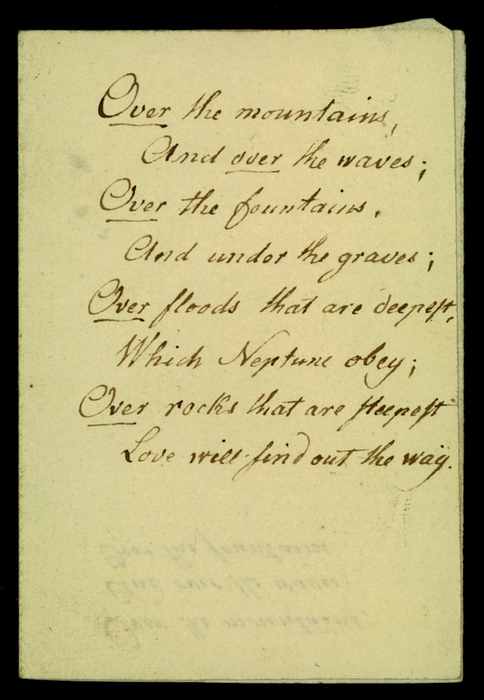 Over the mountains,
And over the waves;
Over the fountains,
And under the graves;
Over floods that are deepeſt,
Which Neptune obey;
Over rocks that are ſteepeſt
Love will find out the way.